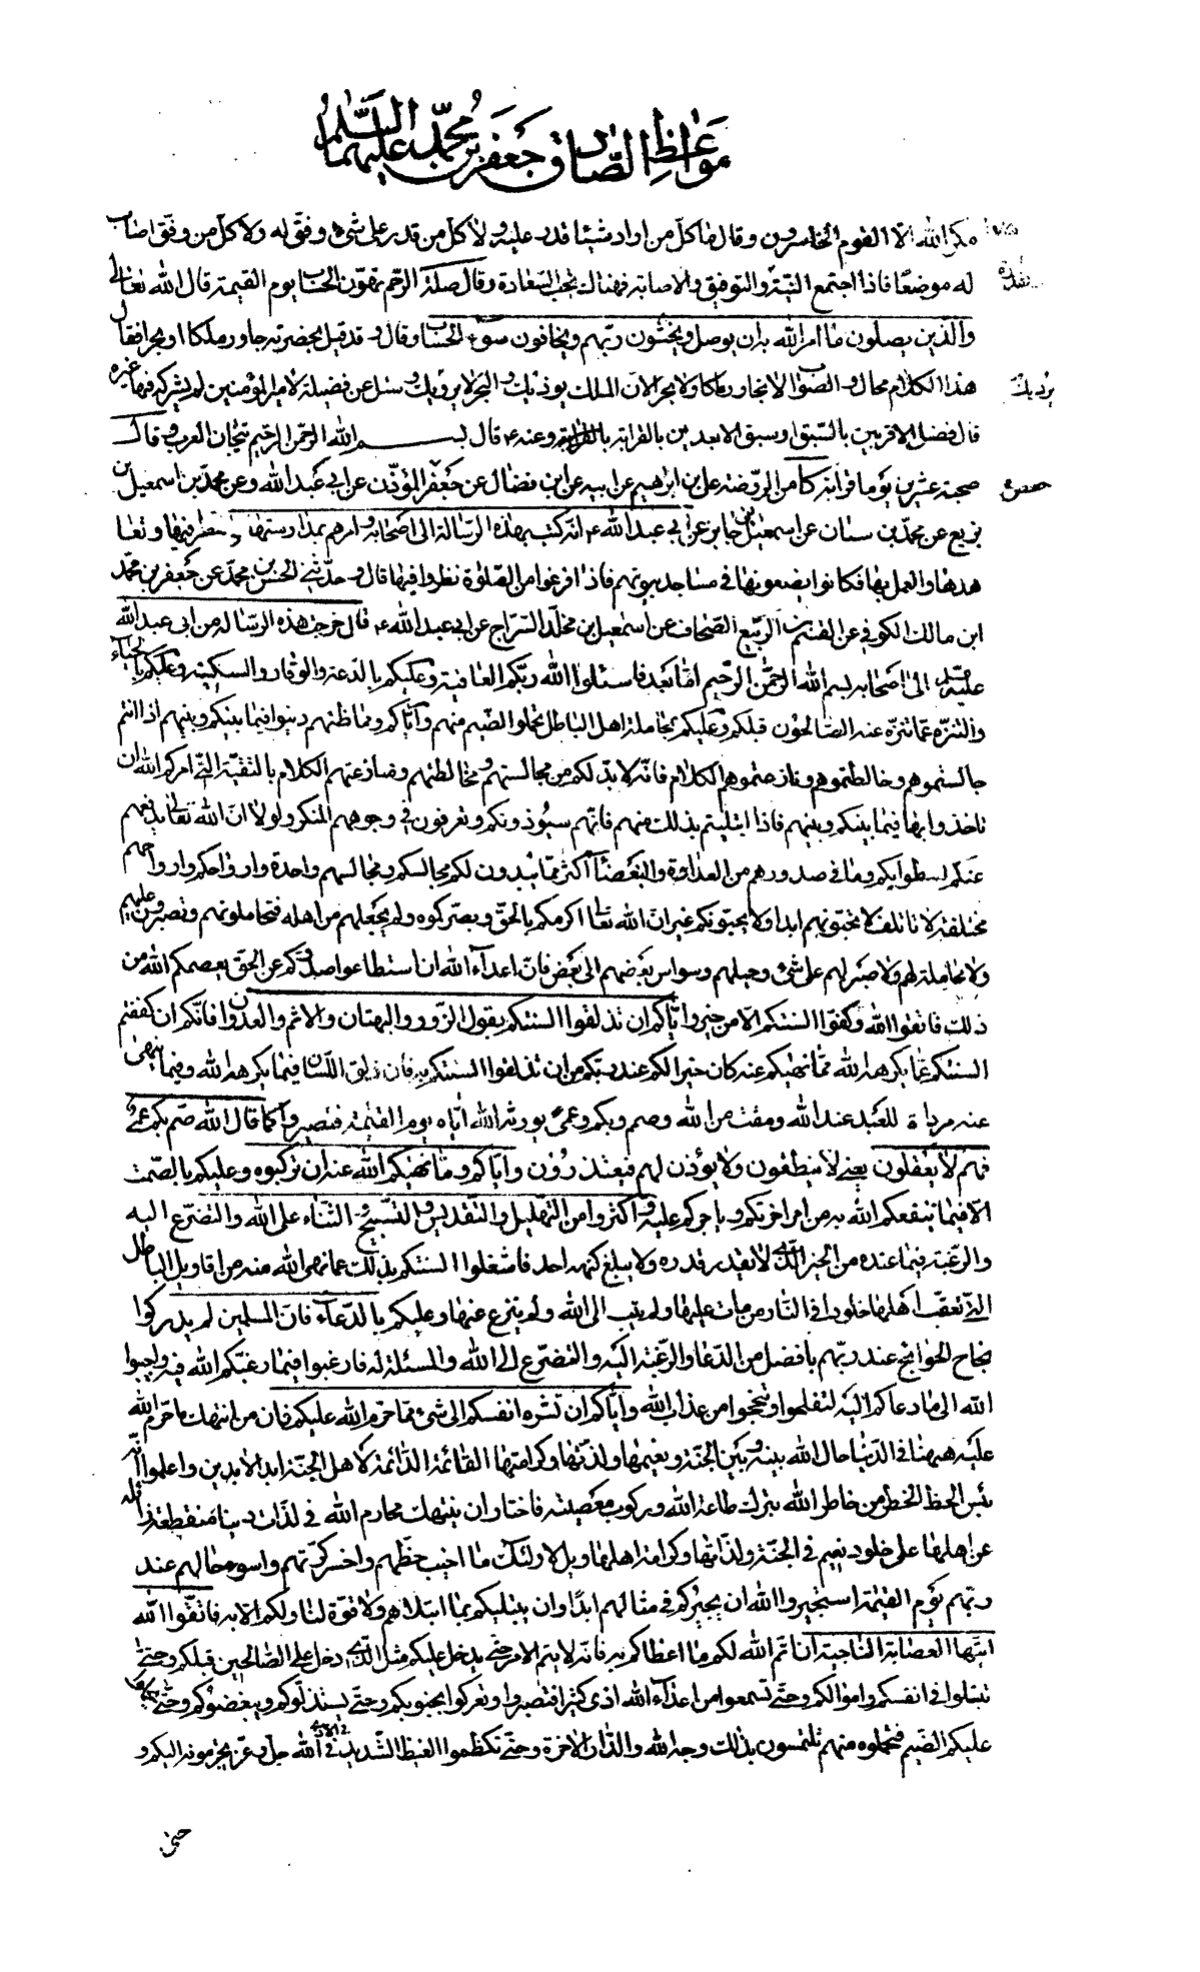 مواعظ الصادق جعفر بن محمد عليهما السلام
مكر الله الا القوم الخاسرون وقال ما كل من اراد شيئا قدر عليه ولا كل من قدر على شيء وفق له ولا كل من وفق اصاب
له موضعا فاذا اجتمع النية والتوفيق والاصابة فهنالك تجب السعادة وقال صلة الرحم تهون الحساب يوم القيمة قال الله تعالى
والذين يصلون ما امر الله به ان يوصل ويخشون ربهم ويخافون سوء الحساب وقال وقد قيل بحضرته جاور ملكا او بحرا فقال
هذا الكلام محال والصواب لا تجاور ملكا ولا بحرا لان الملك يوذيك والبحر لا يرويك وسئل عن فضيلة لامير المؤمنين لم يشركه فيها غيره
يرديك
قال فضل الاقربين بالسبق وسبق الابعدين بالقرابة وعنه ع قال بسم الله الرحمن الرحيم تيجان العرب وقال
صحبة عشرين يوما قرابة كا من الروضة علي بن ابرهيم عن ابيه عن ابن فضال عن حفص المؤذن عن ابي عبد الله وعن محمد بن اسمعيل بن
حفص
بزيع عن محمد بن سنان عن اسمعيل بن جابر عن ابي عبد الله ع انه كتب بهذه الرسالة الى اصحابه وامرهم بمدارستها والنظر فيها وتعا
هدها والعمل بها فكانوا يضعونها في مساجد بيوتهم فاذا فرغوا من الصلوة نظروا فيها قال وحدثني الحسن بن محمد عن جعفر بن محمد
ابن مالك الكوفي عن القسم بن الربيع الصحاف عن اسمعيل بن مخلد السراج عن ابي عبد الله ع قال خرجت هذه الرسالة من ابي عبد الله
عليه السلام الى اصحابه بسم الله الرحمن الرحيم اما بعد فاسئلوا الله ربكم العافية وعليكم بالدعة والوقار والسكينة وعليكم بالحياء
والتنزه عما تنزه عنه الصالحون قبلكم وعليكم بمجاملة اهل الباطل تحملوا الضيم منهم واياكم ومماظتهم دينوا فيما بينكم وبينهم اذا انتم
جالستموهم وخالطتموهم ونازعتموهم الكلام فانه لا بد لكم من مجالستهم ومخالطتهم ومنازعتهم الكلام بالتقية التي امركم الله ان
تاخذوا بها فيما بينكم وبينهم فاذا ابتليتم بذلك منهم فانهم سيؤذونكم وتعرفون في وجوههم المنكر ولولا ان الله تعالى يدفعهم
عنكم لسطوا بكم وما في صدورهم من العداوة والبغضاء اكثر مما يبدون لكم مجالسكم ومجالسهم واحدة وارواحكم وارواحهم
مختلفة لا تاتلف لا تحبونهم ابدا ولا يحبونكم غير ان الله تعالى اكرمكم بالحق وبصركوه ولم يجعلهم من اهله فتجاملونهم وتصبرون عليهم
ولا مجاملة لهم ولا صبر لهم على شيء وحيلهم وسواس بعضهم الى بعض فان اعداء الله ان استطاعوا صدوكم عن الحق يعصمكم الله من
ذلك فاتقوا الله وكفوا السنتكم الا من خير واياكم ان تذلقوا السنتكم بقول الزور والبهتان والاثم والعدوان فانكم ان كففتم
السنتكم عما يكرهه الله مما نهيكم عنه كان خيرا لكم عند ربكم من ان تذلقوا السنتكم به فان ذلق اللسان فيما يكرهه الله وفيما ينهى
عنه مرداة للعبد عند الله ومقت من الله وصم وبكم وعمى يورثه الله اياه يوم القيمة فتصيروا كما قال الله صم بكم عمي
فهم لا يعقلون يعني لا ينطقون ولا يؤذن لهم فيعتذرون واياكم وما نهيكم الله عنه ان تركبوه وعليكم بالصمت
الا فيما ينفعكم الله به من امر اخرتكم وياجركم عليه واكثروا من التهليل والتقديس والتسبيح والثناء على الله والتضرع اليه
والرغبة فيما عنده من الخير الذي لا يقدر قدره ولا يبلغ كنهه احد فاشغلوا السنتكم بذلك عما نهى الله منه من اقاويل الباطل
التي تعقب اهلها خلودا في النار من مات عليها ولم يتب الى الله ولم ينزع عنها وعليكم بالدعاء فان المسلمين لم يدركوا
نجاح الحوائج عند ربهم بافضل من الدعا والرغبة اليه والتضرع الى الله والمسئلة له فارغبوا فيما رغبكم الله فيه واجيبوا
الله الى ما دعاكم اليه لتفلحوا وتنجحوا من عذاب الله واياكم ان تشره انفسكم الى شيء مما حرم الله عليكم فان من انتهك ما حرم الله
عليه ههنا في الدنيا حال الله بينه وبين الجنة ونعيمها ولذتها وكرامتها القائمة الدائمة لاهل الجنة ابد الابدين واعلموا انه
بئس الحظ الخطر من خاطر الله بترك طاعة الله وركوب معصيته فاختار ان ينتهك محارم الله في لذات دنيا منقطعة زائلة
عن اهلها على خلود نعيم في الجنة ولذاتها وكرامة اهلها ويل لاولئك ما اخيب حظهم واخسر كرتهم واسوء حالهم عند
ربهم يوم القيمة استجيروا الله ان يجيركم في مثالهم ابدا وان يبتليكم بما ابتلاهم ولا قوة لنا ولكم الا به فاتقوا الله
ايتها العصابة الناجية ان اتم الله لكم ما اعطاكم به فانه لا يتم الامر حتى يدخل عليكم مثل الذي دخل على الصالحين قبلكم وحتى
تبتلوا في انفسكم واموالكم وحتى تسمعوا من اعداء الله اذى كثيرا فتصبروا وتعركوا بجنوبكم وحتى يستذلوكم ويبغضوكم وحتى يحملوا
عليكم الضيم فتحملوه منهم تلتمسون بذلك وجه الله والدار الاخرة وحتى تكظموا الغيظ الشديد في الله جل وعز يجترمونه اليكم و
حتى